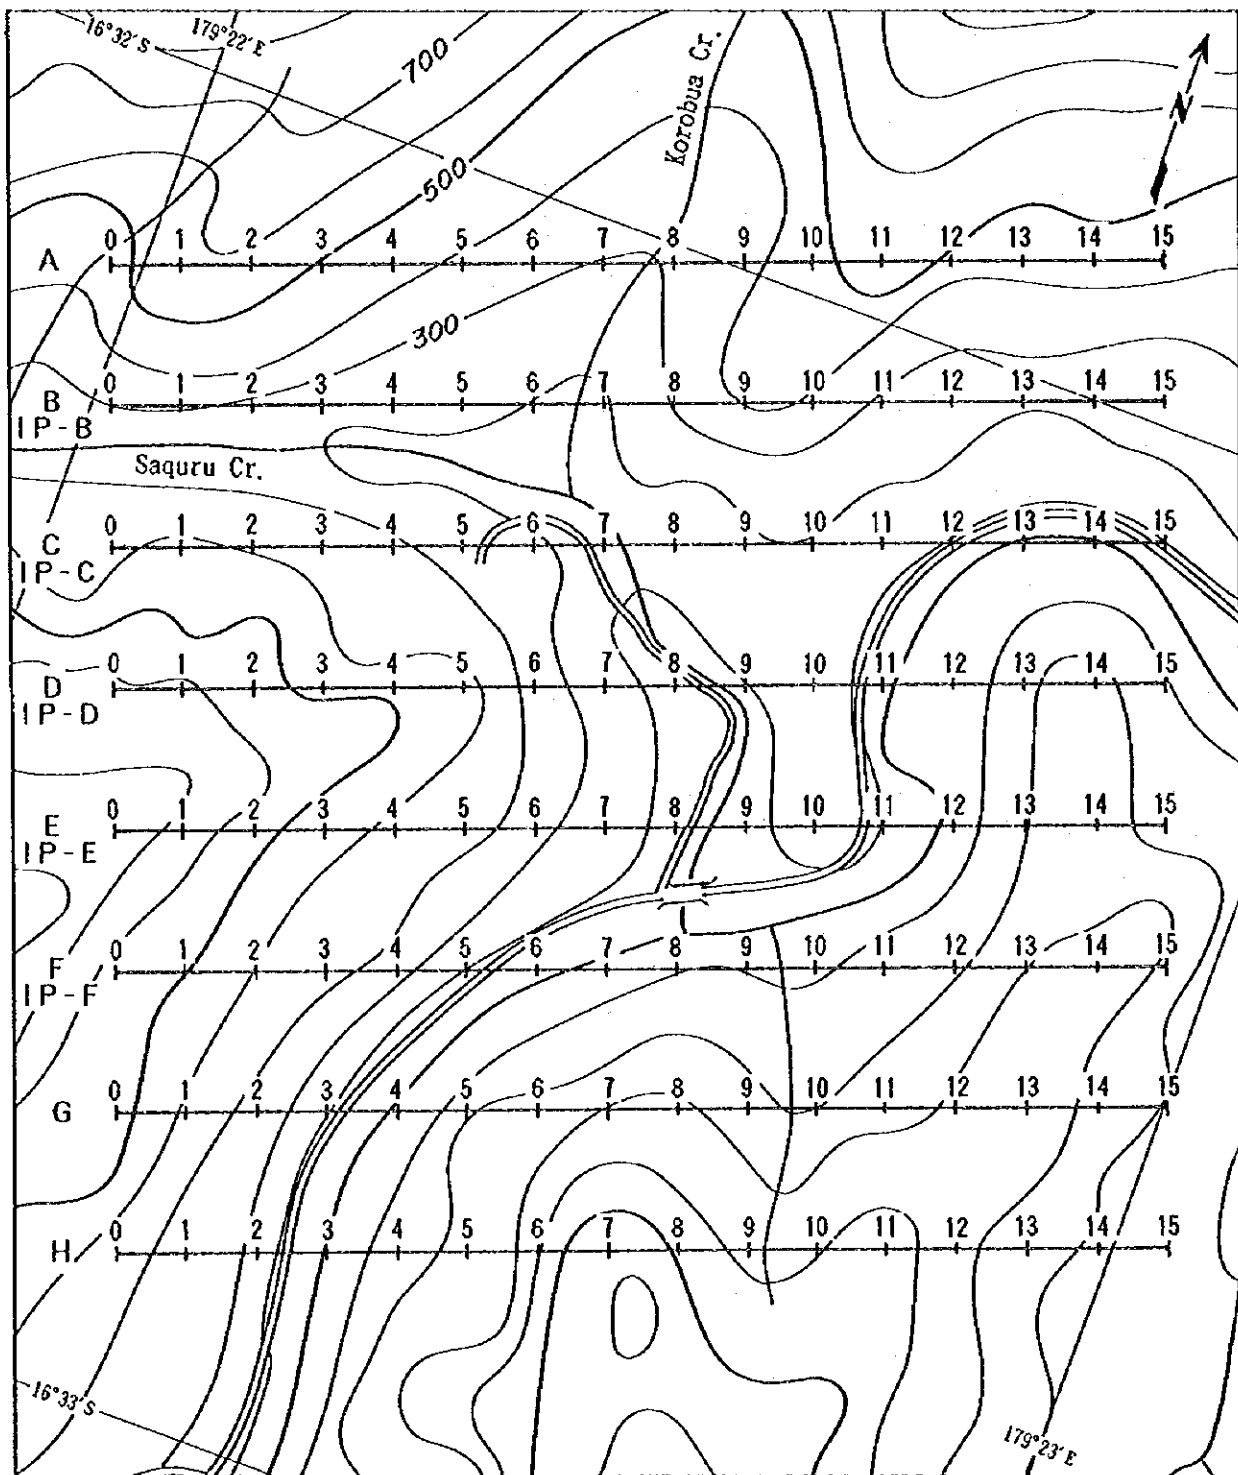 16°32'S
179°22'E
700
Korobua Cr.
N
500
0 1 2 3 4 5 6 7 8 9 10 11 12 13 14 15
A
300
0 1 2 3 4 5 6 7 8 9 10 11 12 13 14 15
B
IP-B
Saquru Cr.
0 1 2 3 4 5 6 7 8 9 10 11 12 13 14 15
C
IP-C
0 1 2 3 4 5 6 7 8 9 10 11 12 13 14 15
D
IP-D
0 1 2 3 4 5 6 7 8 9 10 11 12 13 14 15
E
IP-E
0 1 2 3 4 5 6 7 8 9 10 11 12 13 14 15
F
IP-F
0 1 2 3 4 5 6 7 8 9 10 11 12 13 14 15
G
0 1 2 3 4 5 6 7 8 9 10 11 12 13 14 15
H
16°33'S
179°23'E